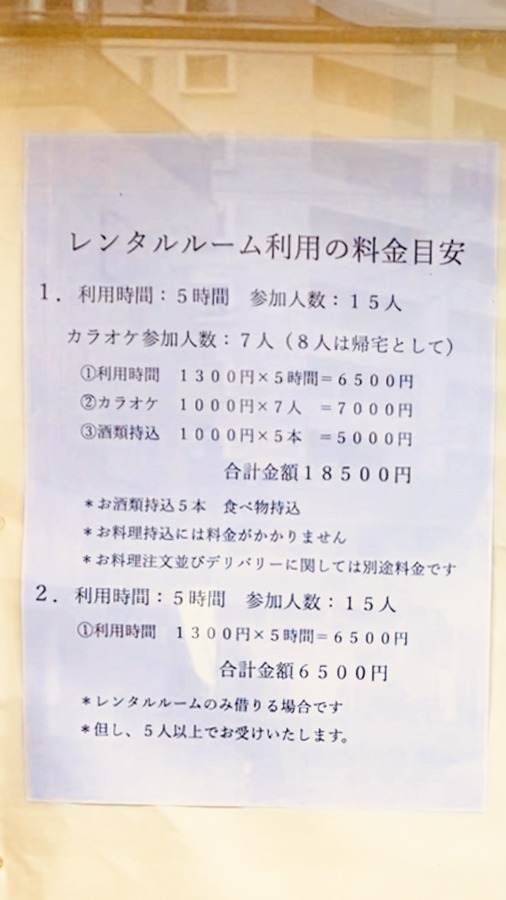 レンタルルーム利用の料金目安
1． 利用時間：５時間　参加人数：１５人
カラオケ参加人数：７人（８人は帰宅として）
①利用時間　１３００円×５時間＝６５００円
②カラオケ　１０００円×７人　＝７０００円
③酒類持込　１０００円×５本　＝５０００円
合計金額１８５００円
＊お酒類持込５本　食べ物持込
＊お料理持込には料金がかかりません
＊お料理注文並びデリバリーに関しては別途料金です
2． 利用時間：５時間　参加人数：１５人
①利用時間　１３００円×５時間＝６５００円
合計金額６５００円
＊レンタルルームのみ借りる場合です
＊但し、５人以上でお受けいたします。